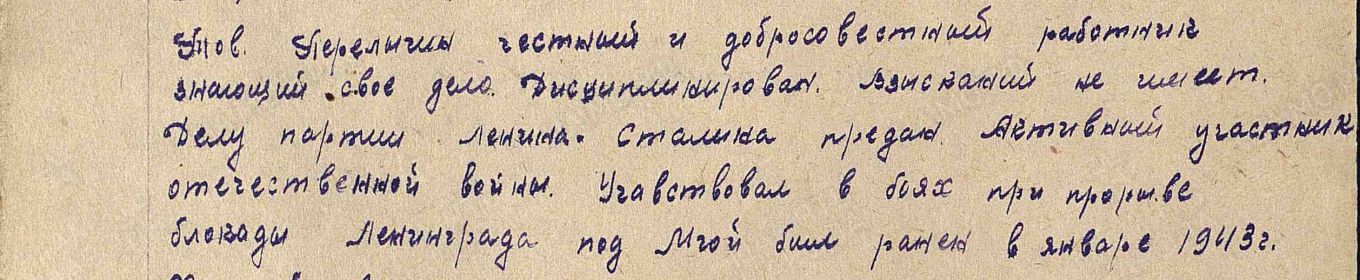 Тов. Перелыгин честный и добросовестный работник
знающий свое дело. Дисциплинирован. Взысканий не имеет.
Делу партии Ленина - Сталина предан. Активный участник
отечественной войны. Учавствовал в боях при прорыве
блокады Ленинграда под Мгой был ранен в январе 1943г.